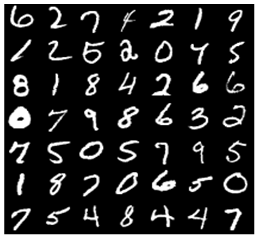 6 2 7 4 2 1 9
1 2 5 2 0 4 5
8 1 8 4 2 6 6
0 7 9 8 6 3 2
7 5 0 5 7 9 5
1 8 7 0 6 5 0
7 5 4 8 4 4 7